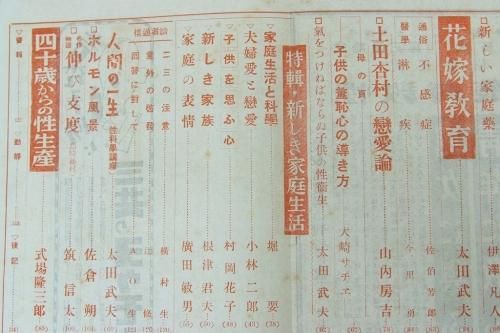 新しい家庭藥 伊澤凡人
花嫁教育 太田武夫
通俗醫學 不感症 佐伯男
淋疾 今
□土田杏村の戀愛論 山内房吉
母の頁
子供の羞恥心の導き方 大崎サチエ
□氣をつけねばならぬ子供の性衞生 太田武夫
特輯・新しき家庭生活
▽家庭生活と科學 堀要
夫婦愛と戀愛 小林二郎
▽子供を思ふ心 村岡花子
新しき家族 根津君夫
▽家庭の表情 廣田敏男
讀者通信欄
二三の注意 横村生
意外の啓發
回答に對して AO生
人間の一生 性科學講座 太田武夫
□ホルモン風景 佐倉朔
仲び支度 筑信太
四十歳からの性生産 式場隆三郎
▽書籍 □動靜 □後記